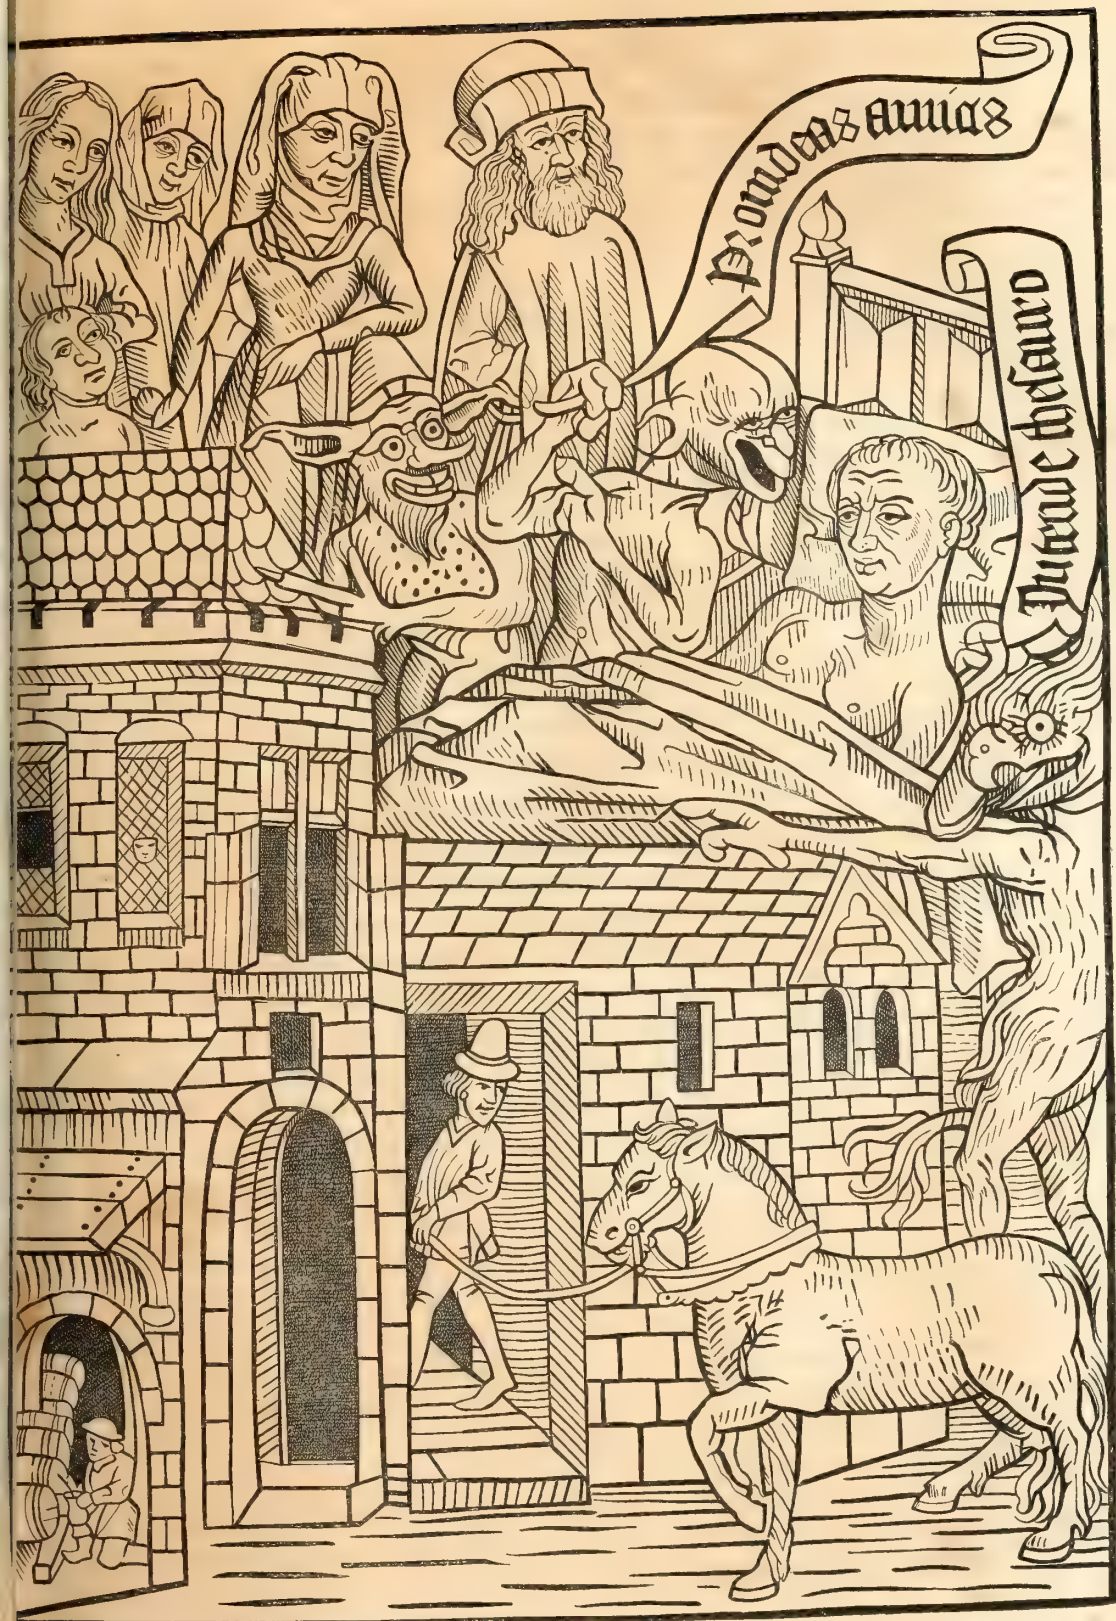 Prouideas amicis
Intende thesauro